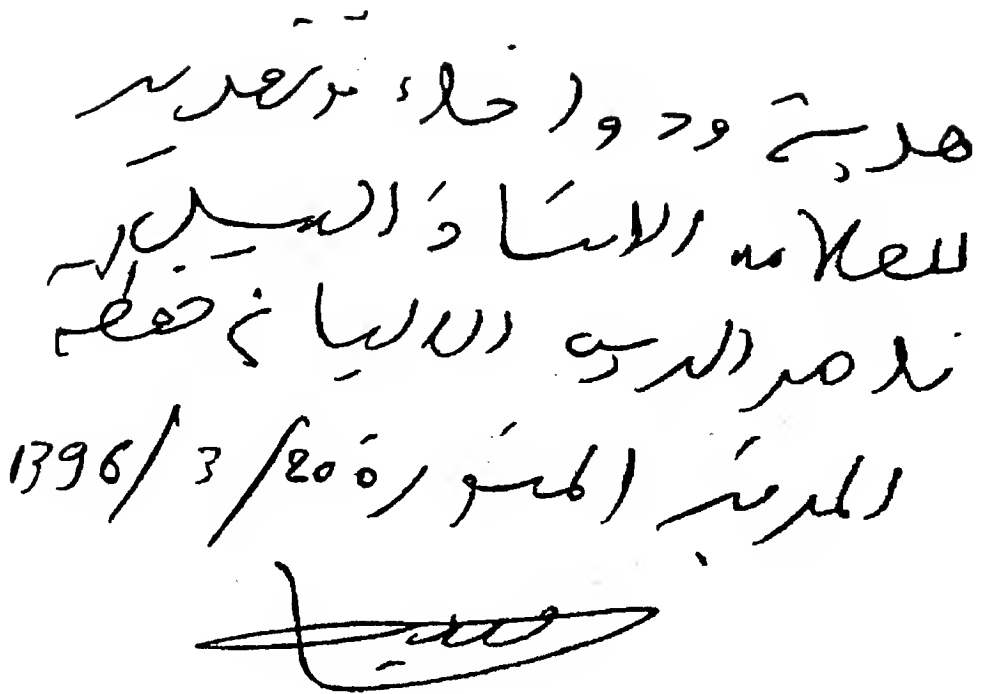 هدية ود و إخاء وتقدير
للعلامه الاستاذ الجليل
ناصر الدين الالباني حفظه الله
المدينة المنورة 20/3/1396